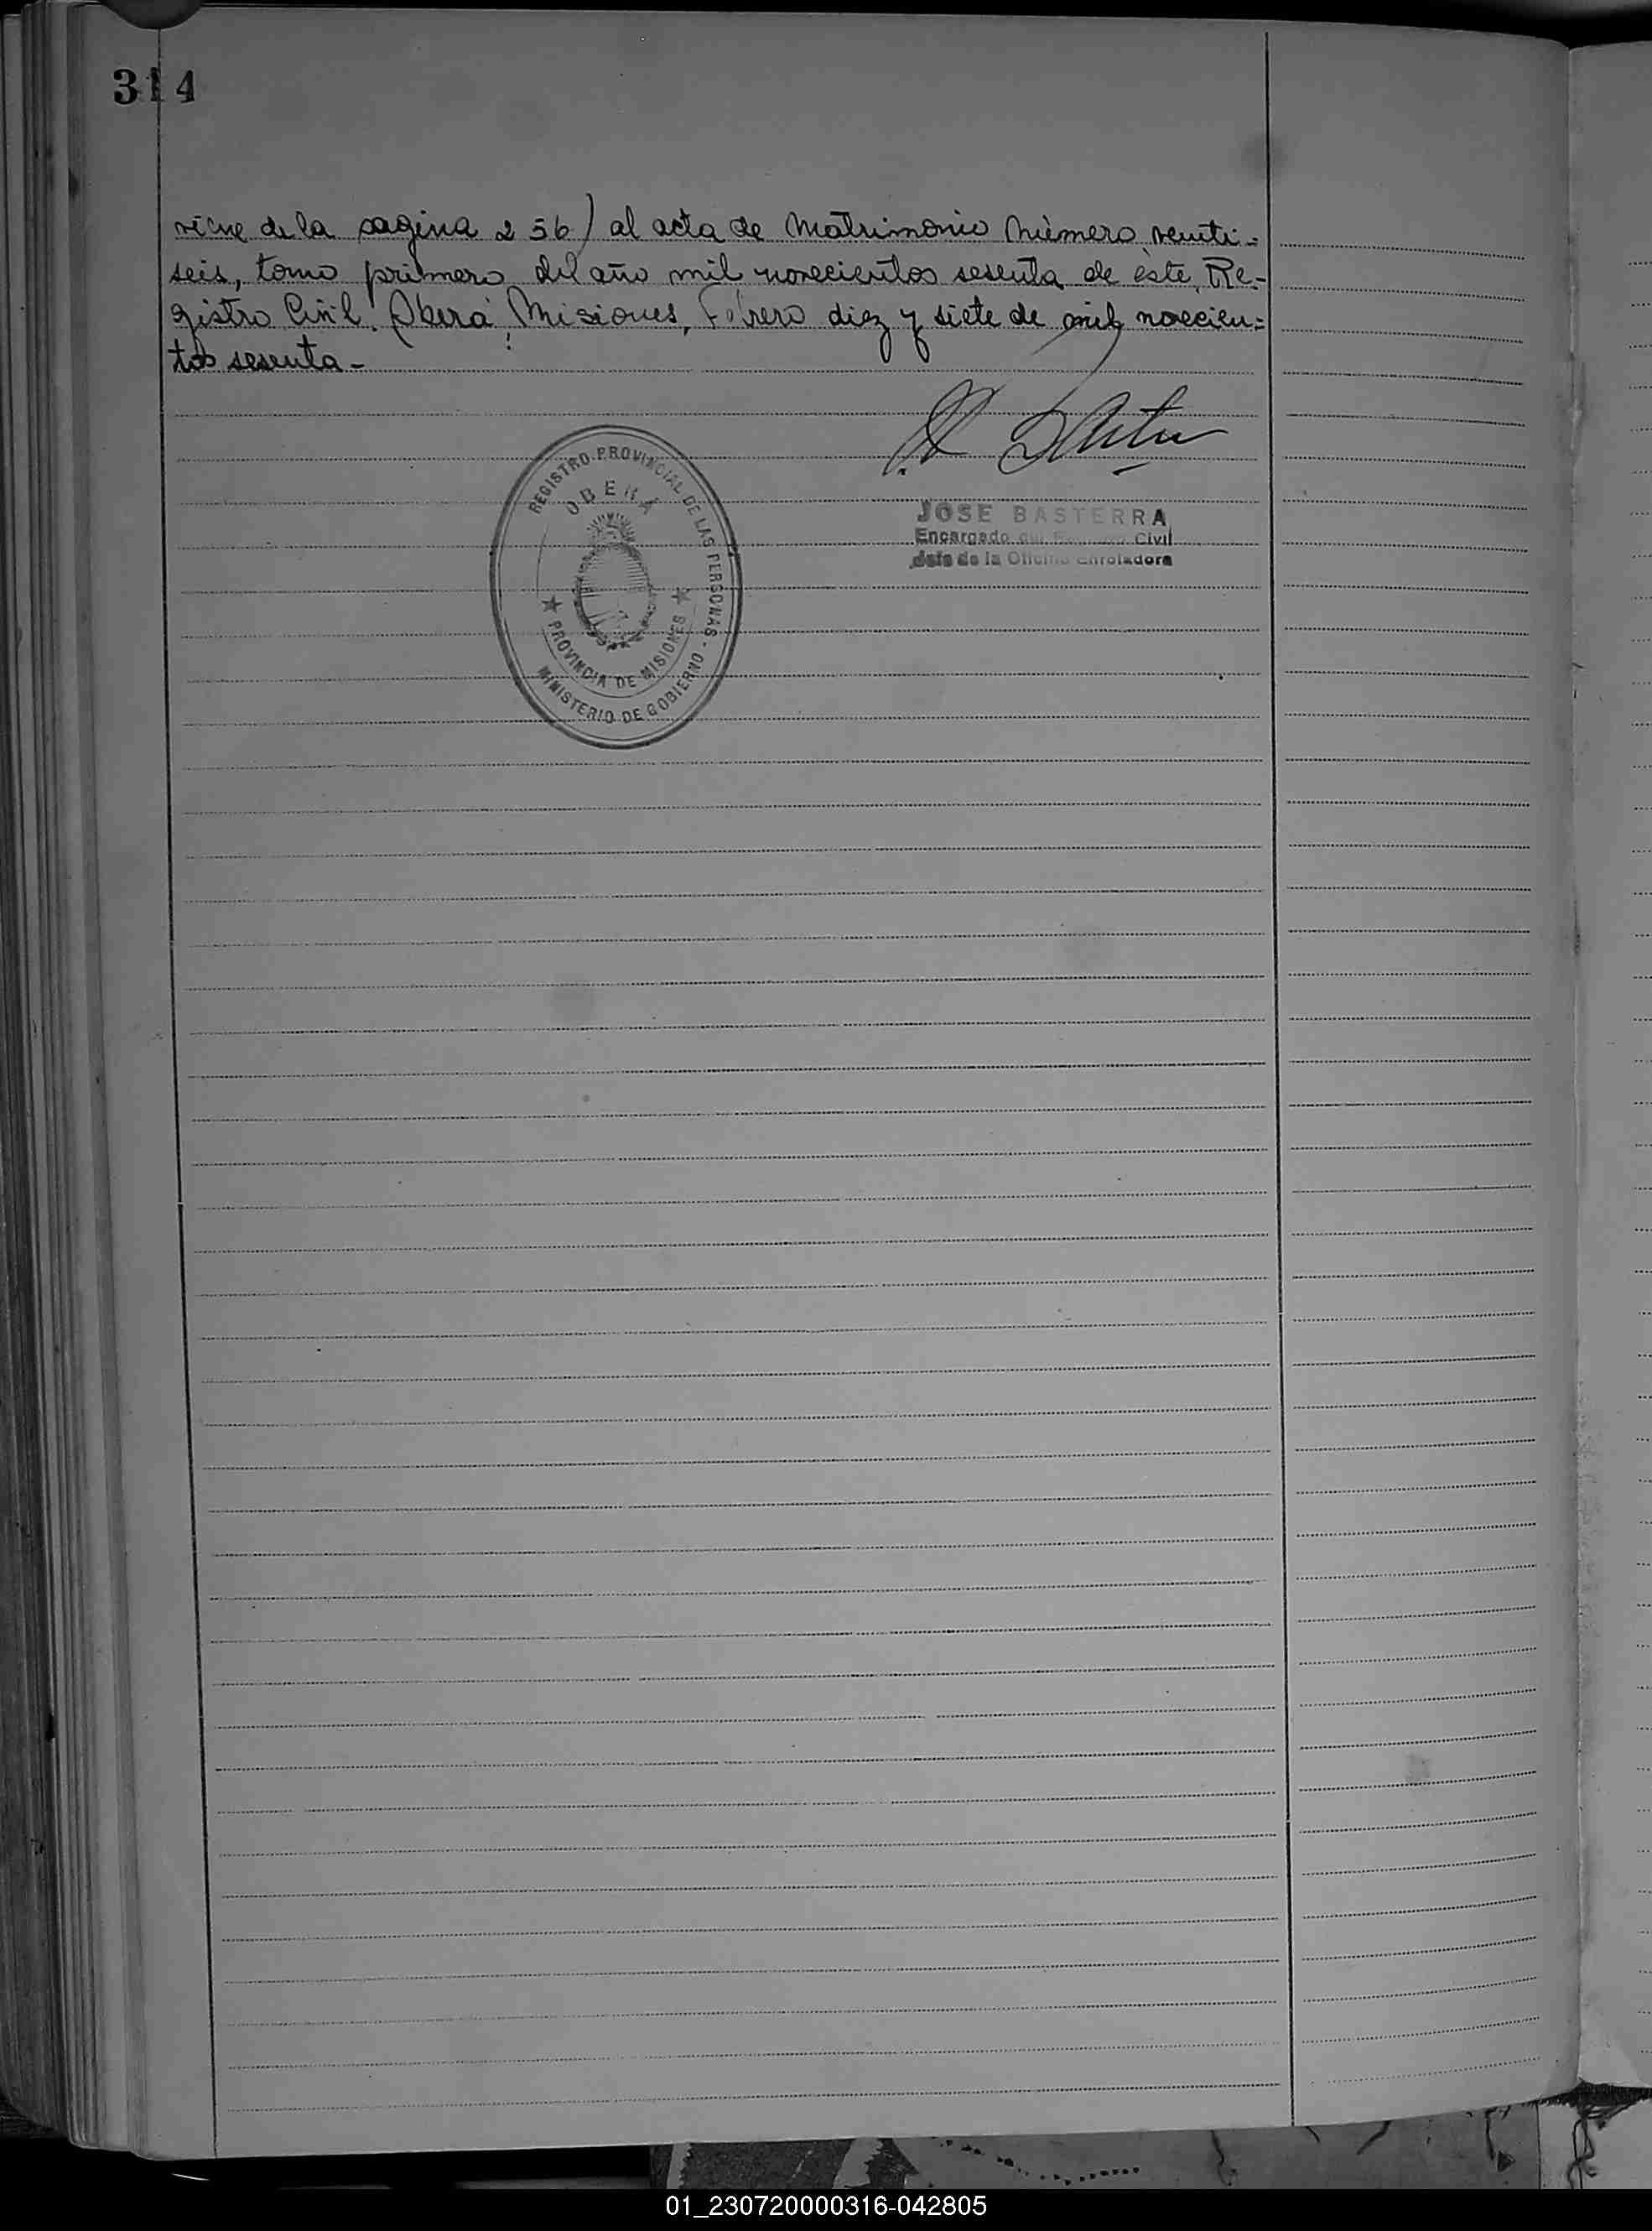 314
viene de la pagina 256) al acta de Matrimonio Número veinti=
seis, tomo primero del año mil novecientos sesenta de éste Re=
gistro Civil. Oberá, Misiones, Febrero diez y siete de mil novecien=
tos sesenta-
REGISTRO PROVINCIAL DE LAS PERSONAS - MINISTERIO DE GOBIERNO
OBERÁ
★ PROVINCIA DE MISIONES ★
JOSE BASTERRA
Encargado del Civil
Jefe de la Oficina Enroladora
01_230720000316-042805